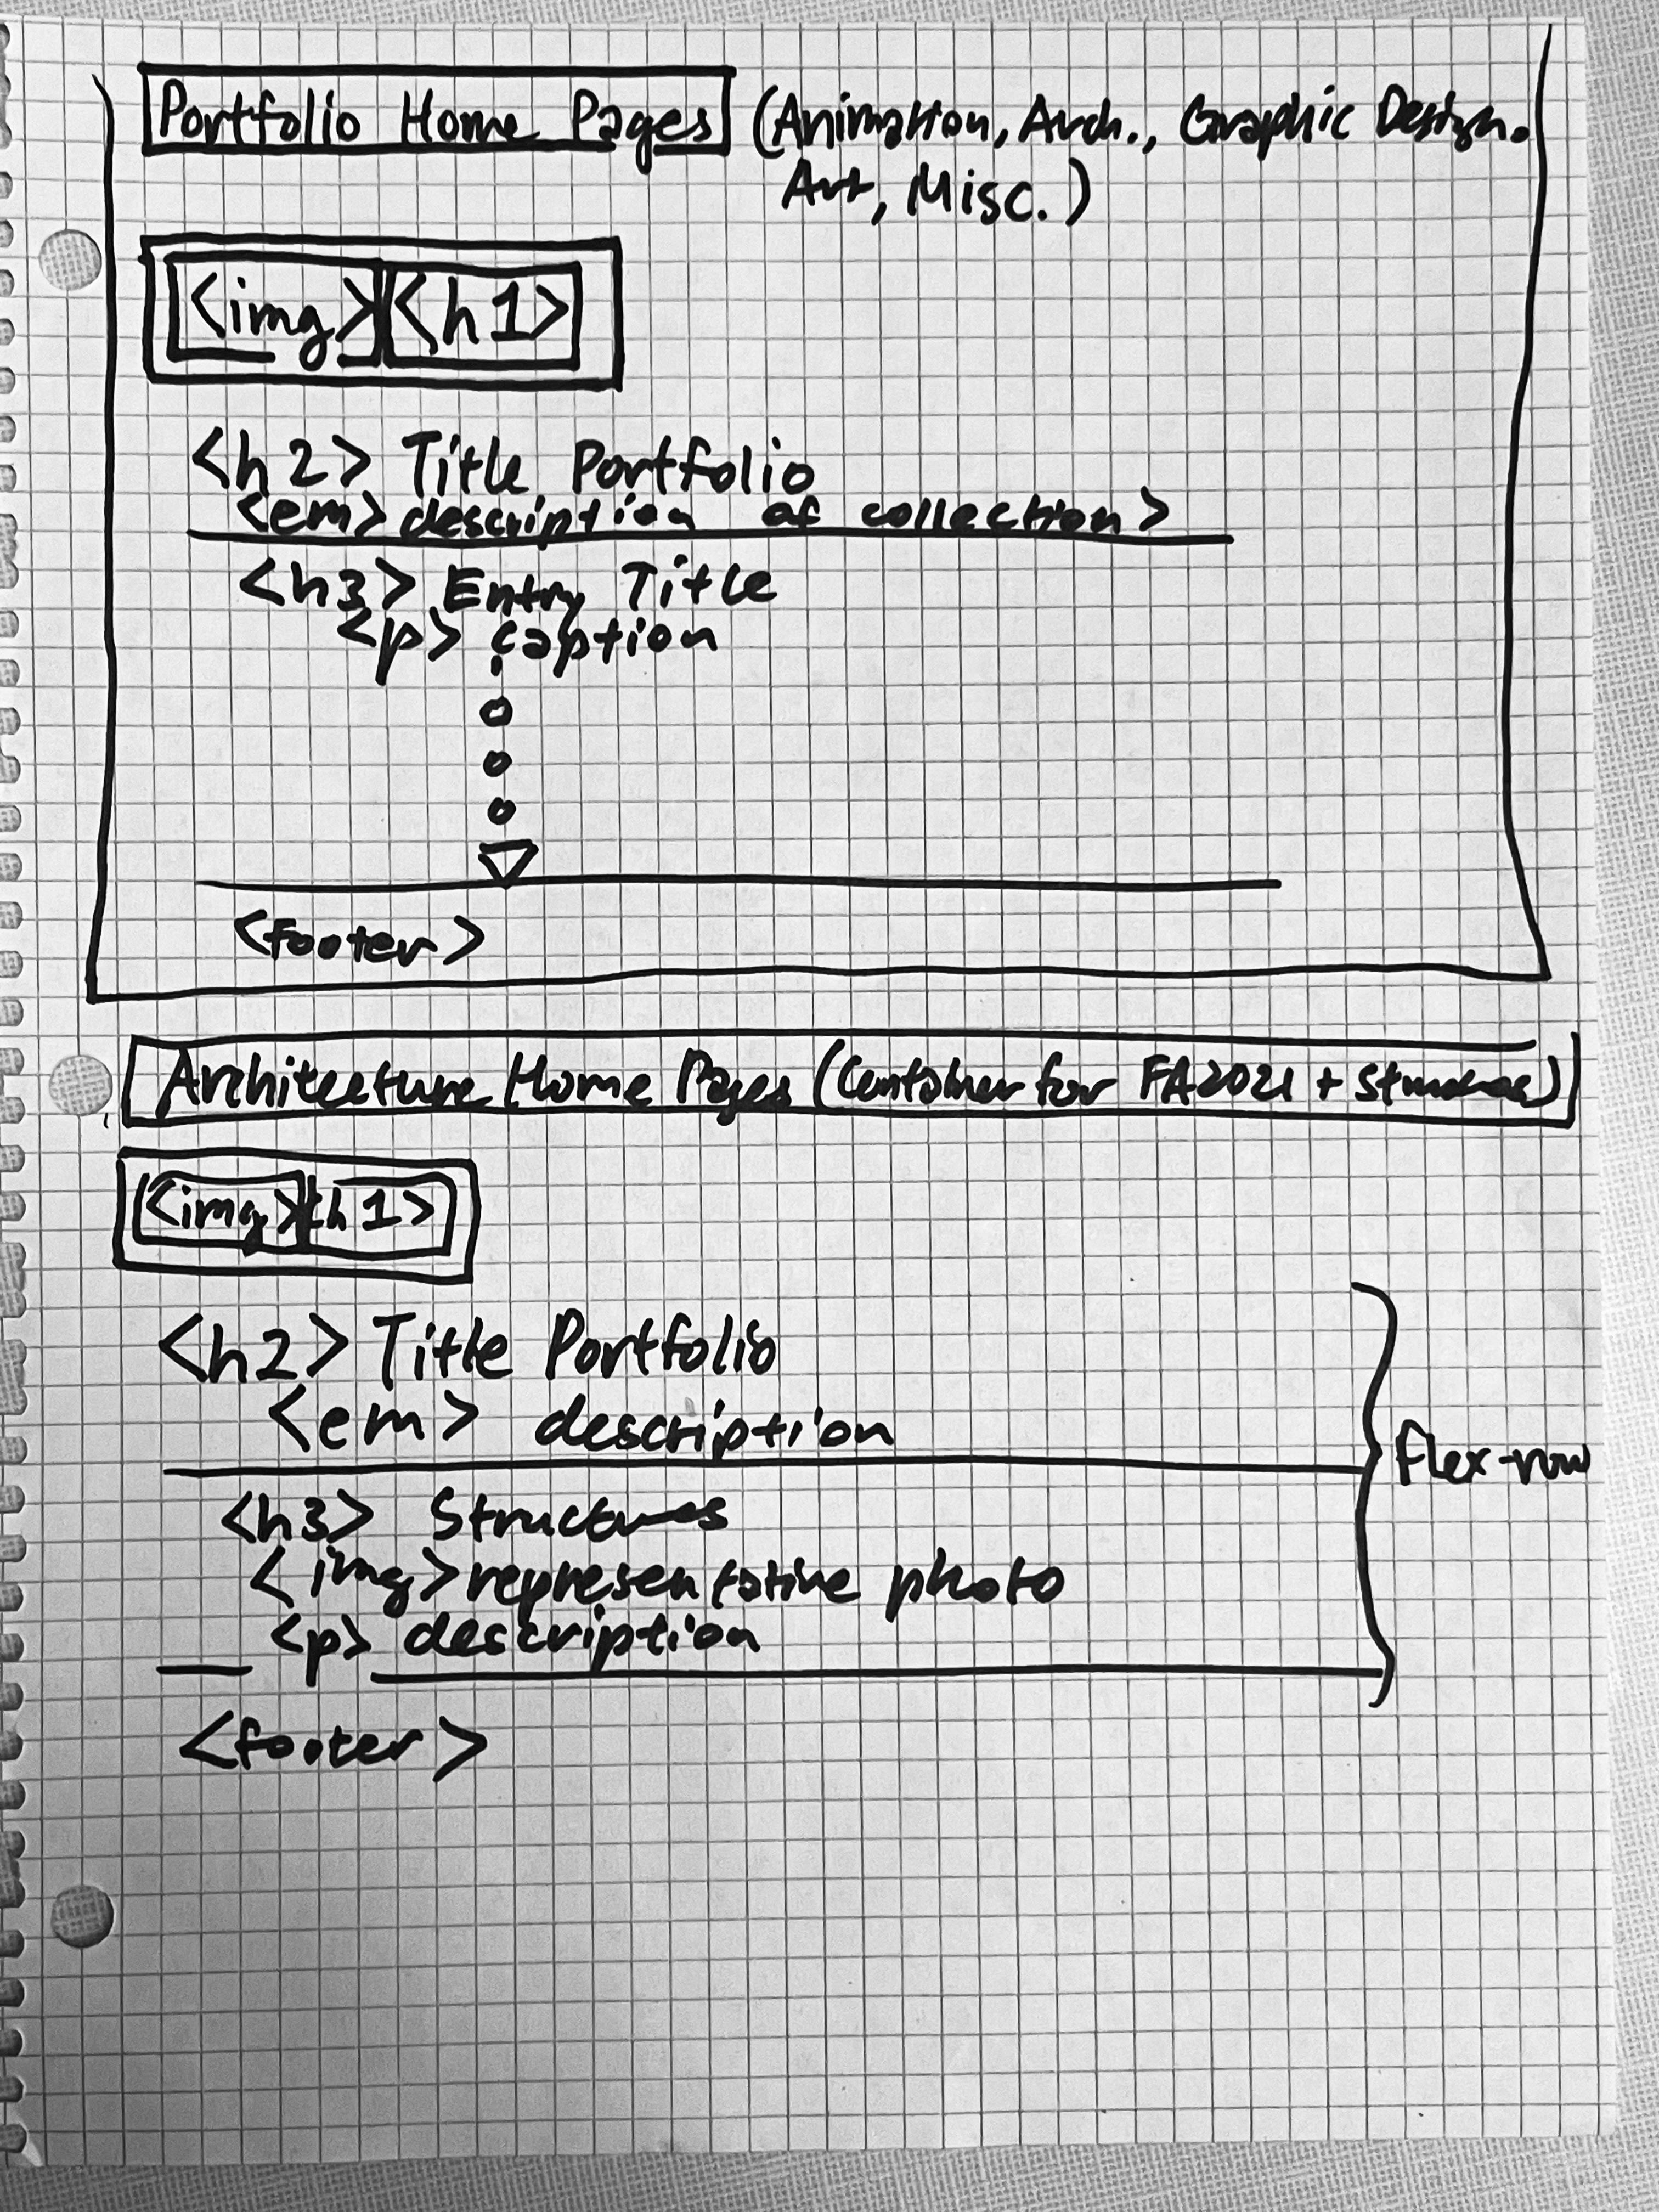 Portfolio Home Pages (Animation, Arch., Graphic Design.
Art, Misc.)
<img> <h1>
<h2> Title Portfolio
<em> description of collection>
<h3> Entry Title
<p> caption
<footer>
Architecture Home Pages (Container for FA2021 + Structures)
<img> <h1>
<h2> Title Portfolio
<em> description
flex-row
<h3> Structures
<img> representative photo
<p> description
<footer>